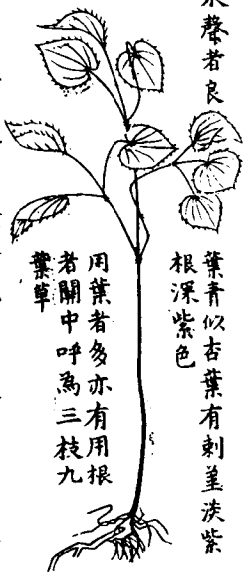 者良
葉青似杏葉有刺莖淡紫
根深紫色
用葉者多亦有用根
者關中呼為三枝九
葉草